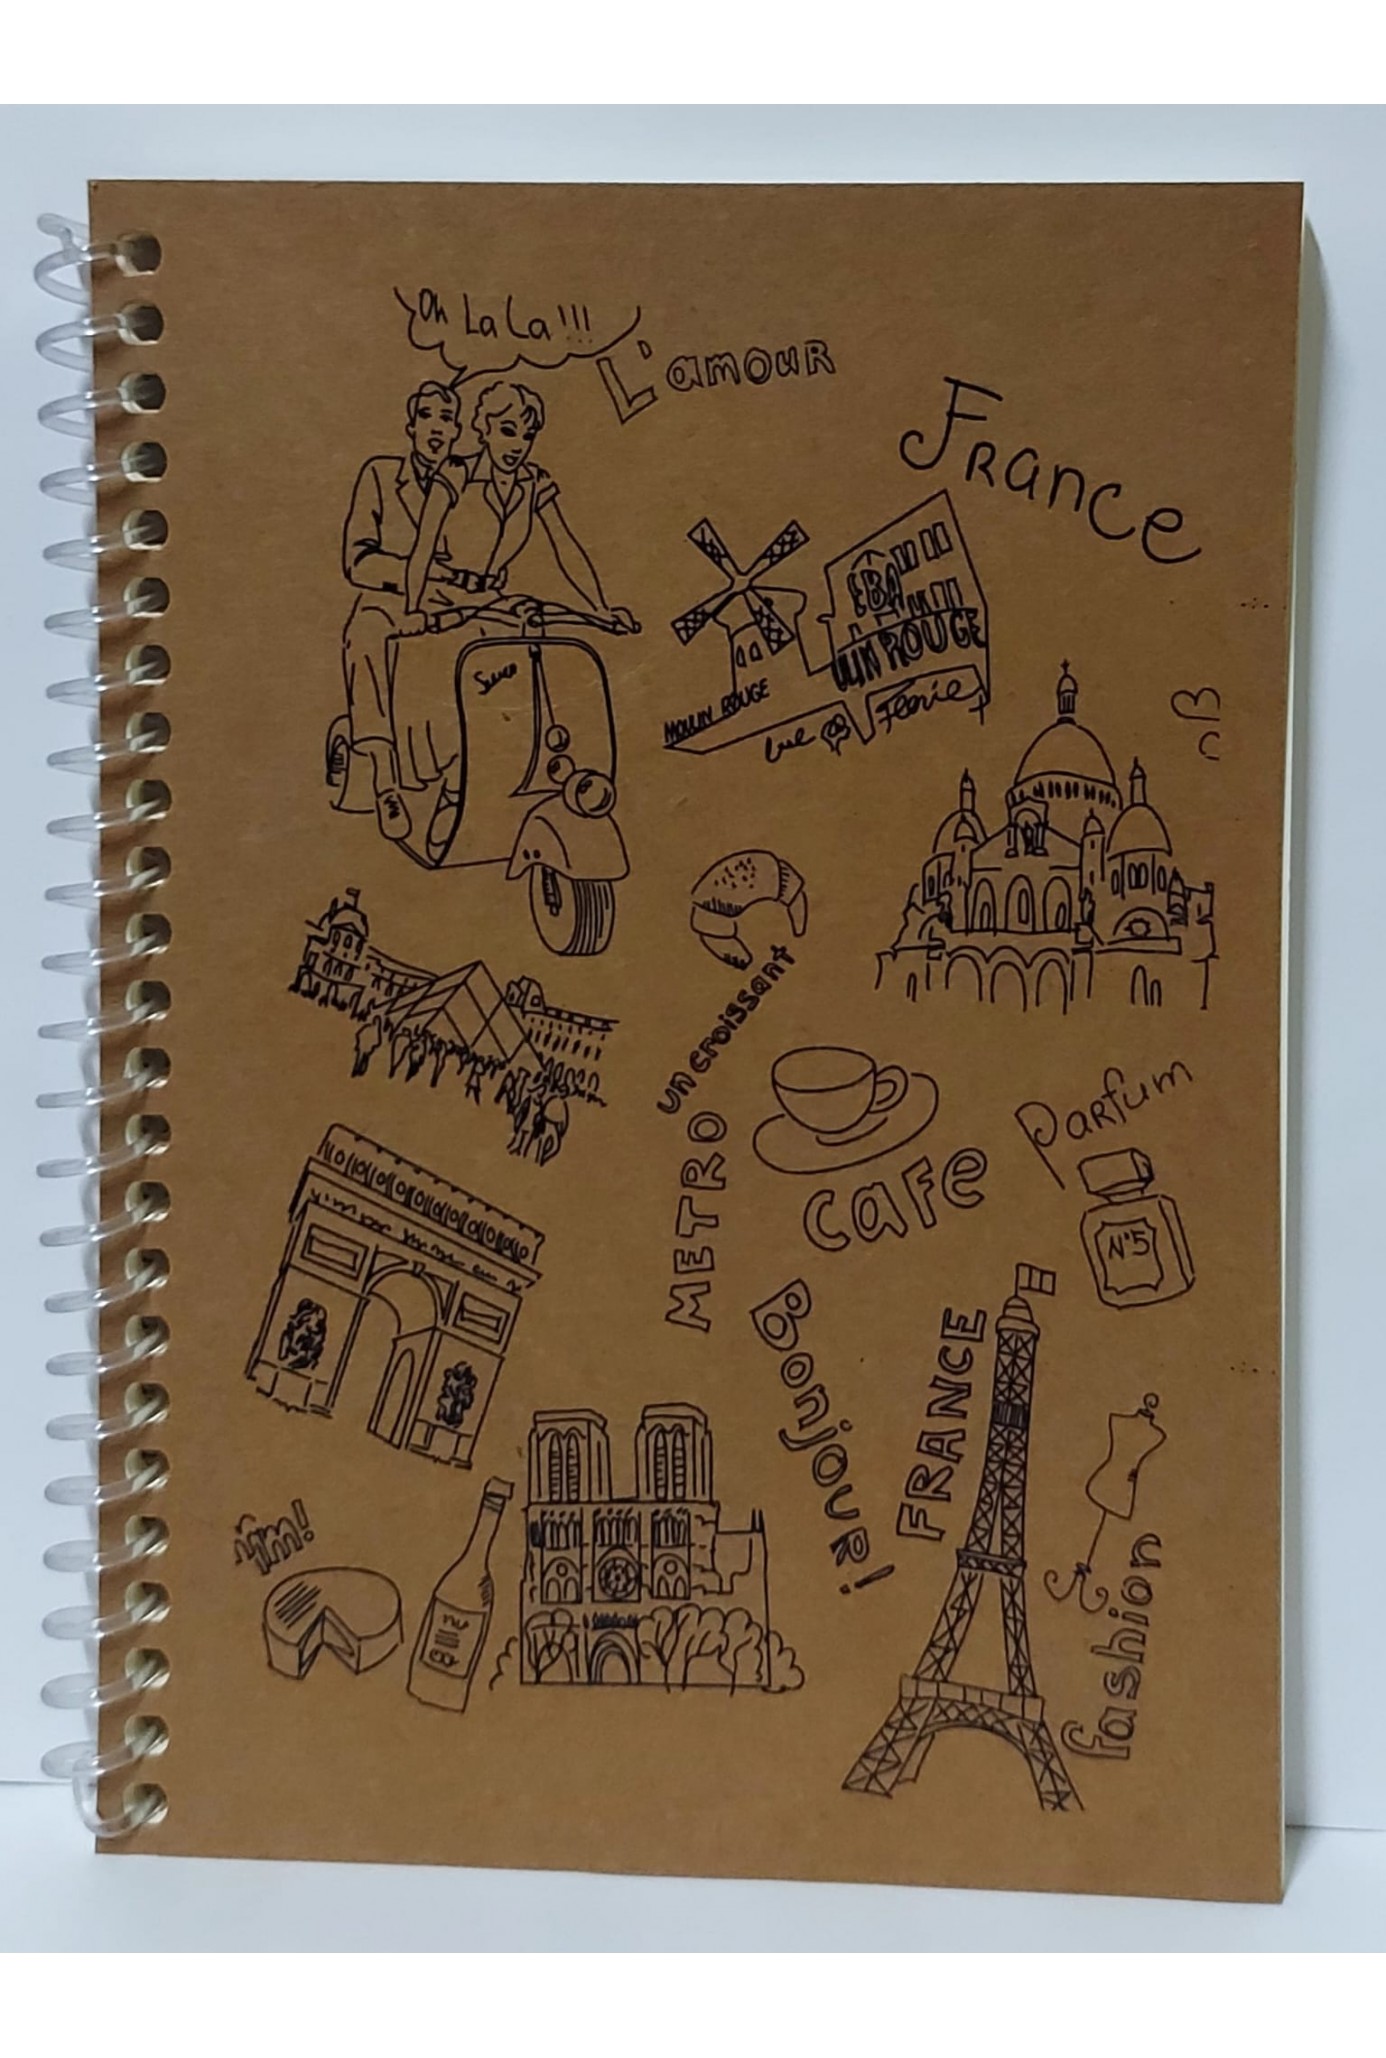 Oh La La!!!
L'amour
France
EBA
ULIN ROUGE
MOULIN ROUGE
un croissant
METRO
cafe
Parfum
N°5
Bonjour!
FRANCE
fashion